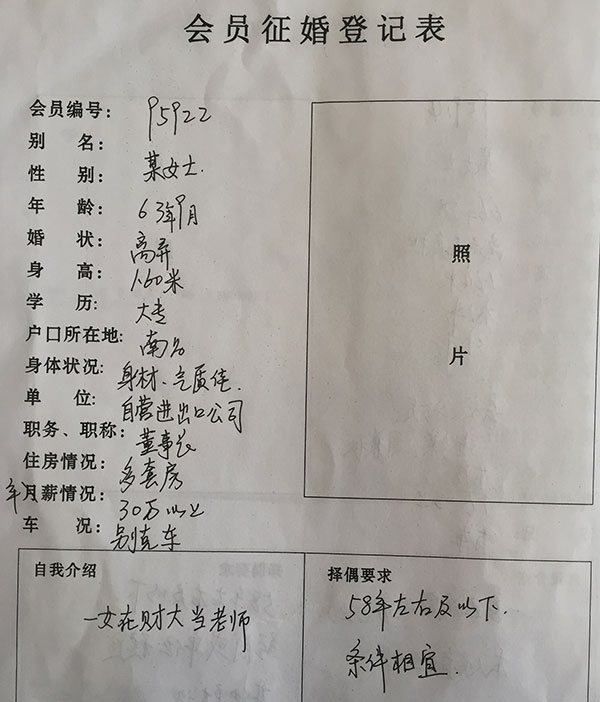 会员征婚登记表
会员编号： 95922
别 名：
性 别： 某女士.
年 龄： 63年9月
婚 状： 离异
身 高： 1.60米
学 历: 大专
户口所在地: 南昌
身体状况: 身材、气质佳.
单 位: 自营进出口公司
职务、职称: 董事长
住房情况: 多套房
年月薪情况: 30万以上
车 况: 别克车
照
片
自我介绍
一女在财大当老师
择偶要求
58年左右及以下.
条件相宜.